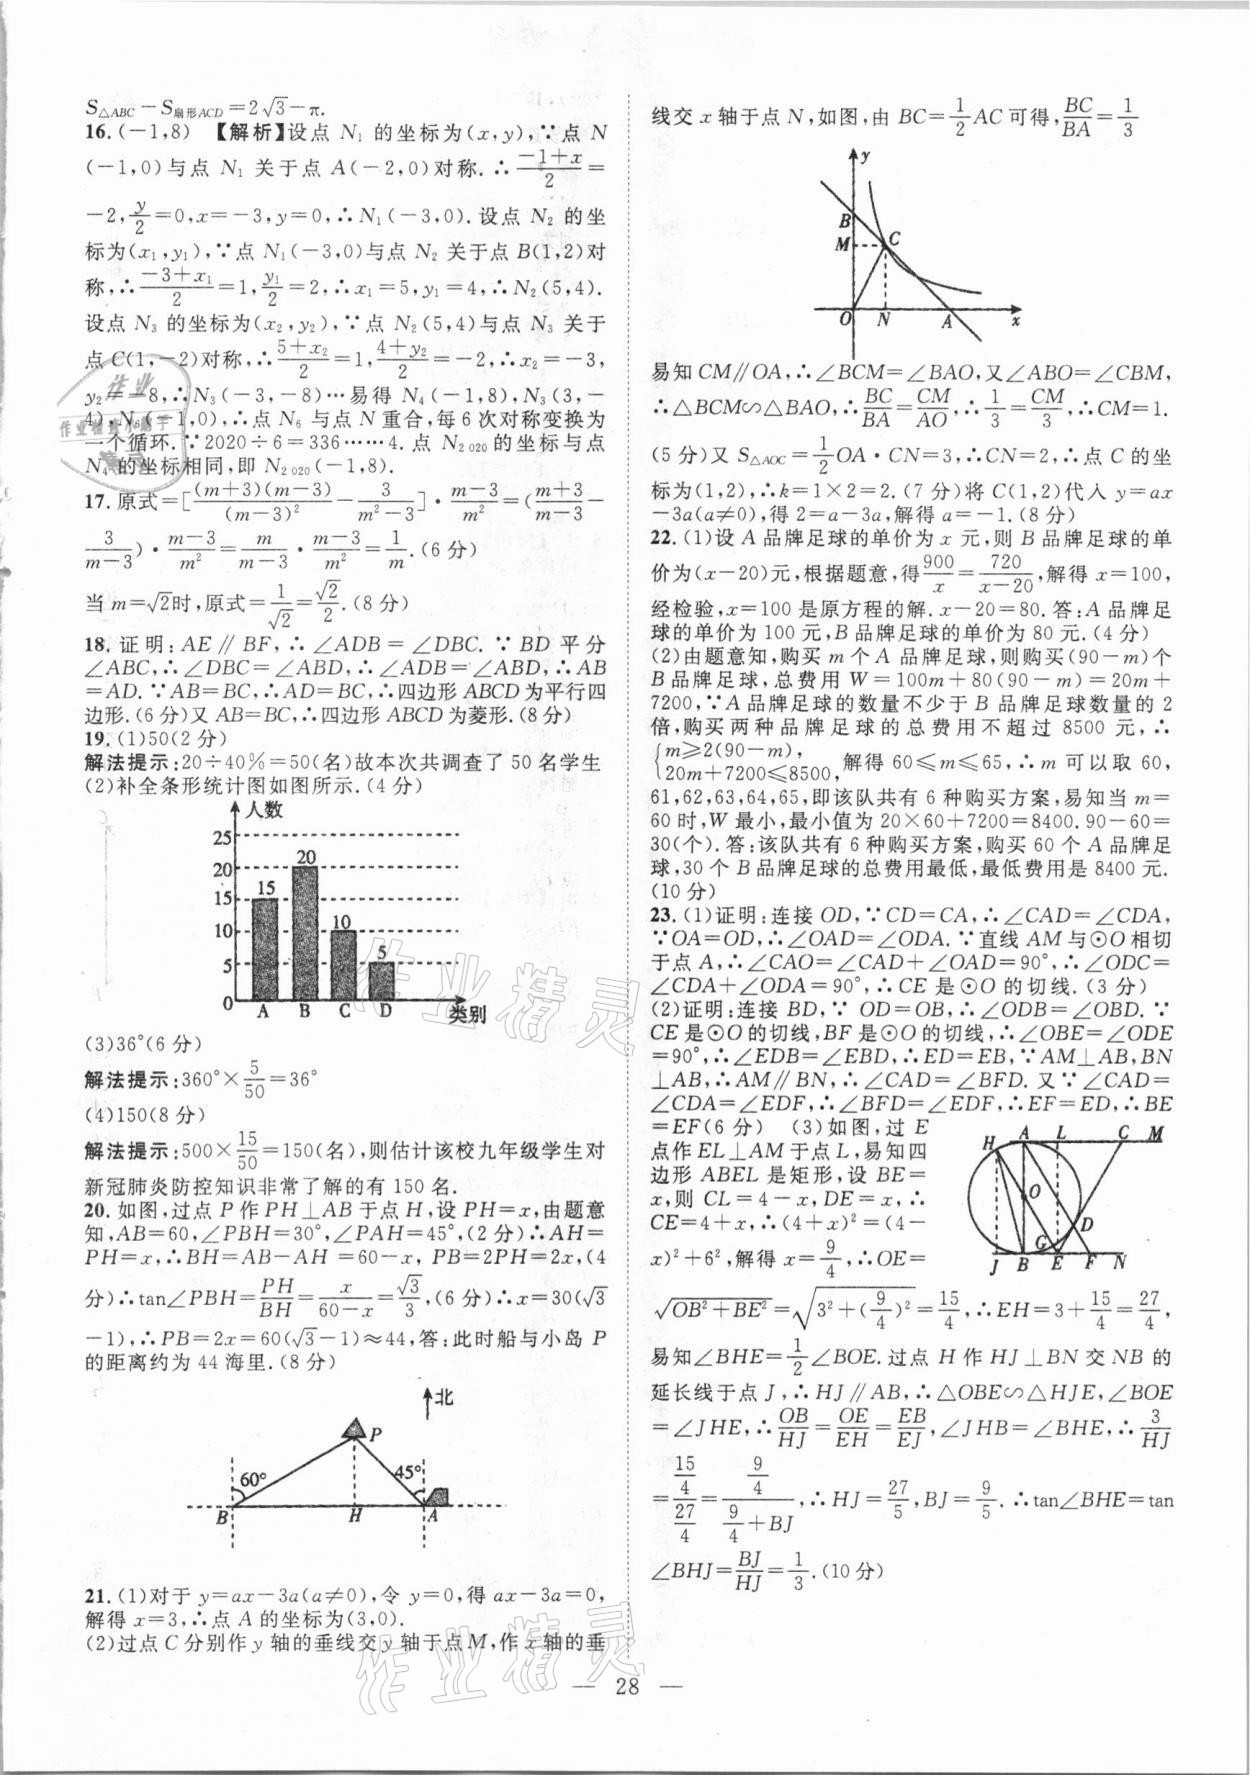 S△ABC－S扇形ACD＝2√3－π.
16.(－1,8) 【解析】设点 N₁ 的坐标为(x,y),∵点 N
(－1,0)与点 N₁ 关于点 A(－2,0)对称.∴(－1＋x)/2＝
－2,y/2＝0,x＝－3,y＝0,∴N₁(－3,0).设点 N₂ 的坐
标为(x₁,y₁),∵点 N₁(－3,0)与点 N₂ 关于点 B(1,2)对
称,∴(－3＋x₁)/2＝1,y₁/2＝2,∴x₁＝5,y₁＝4,∴N₂(5,4).
设点 N₃ 的坐标为(x₂,y₂),∵点 N₂(5,4)与点 N₃ 关于
点 C(1,－2)对称,∴(5＋x₂)/2＝1,(4＋y₂)/2＝－2,∴x₂＝－3,
y₂＝－8,∴N₃(－3,－8)…易得 N₄(－1,8),N₅(3,－
4),N₆(－1,0),∴点 N₆ 与点 N 重合,每 6 次对称变换为
一个循环.∵2020÷6＝336……4.点 N₂₀₂₀ 的坐标与点
N₄ 的坐标相同,即 N₂₀₂₀(－1,8).
17.原式＝[(m＋3)(m－3)/(m－3)²－3/(m²－3)]·(m－3)/m²＝((m＋3)/(m－3)－
3/(m－3))·(m－3)/m²＝m/(m－3)·(m－3)/m²＝1/m.(6 分)
当 m＝√2时,原式＝1/√2＝√2/2.(8 分)
18.证明:AE∥BF,∴∠ADB＝∠DBC.∵BD 平分
∠ABC,∴∠DBC＝∠ABD,∴∠ADB＝∠ABD,∴AB
＝AD.∵AB＝BC,∴AD＝BC,∴四边形 ABCD 为平行四
边形.(6 分)又 AB＝BC,∴四边形 ABCD 为菱形.(8 分)
19.(1)50(2 分)
解法提示:20÷40%＝50(名)故本次共调查了 50 名学生
(2)补全条形统计图如图所示.(4 分)
人数
25
20 20
15 15
10 10
5 5
0 A B C D 类别
(3)36°(6 分)
解法提示:360°×5/50＝36°
(4)150(8 分)
解法提示:500×15/50＝150(名),则估计该校九年级学生对
新冠肺炎防控知识非常了解的有 150 名.
20.如图,过点 P 作 PH⊥AB 于点 H,设 PH＝x,由题意
知,AB＝60,∠PBH＝30°,∠PAH＝45°,(2 分)∴AH＝
PH＝x,∴BH＝AB－AH＝60－x, PB＝2PH＝2x,(4
分)∴tan∠PBH＝PH/BH＝x/(60－x)＝√3/3,(6 分)∴x＝30(√3
－1),∴PB＝2x＝60(√3－1)≈44,答:此时船与小岛 P
的距离约为 44 海里.(8 分)
北
P
60° 45°
B H A
21.(1)对于 y＝ax－3a(a≠0),令 y＝0,得 ax－3a＝0,
解得 x＝3,∴点 A 的坐标为(3,0).
(2)过点 C 分别作 y 轴的垂线交 y 轴于点 M,作 x 轴的垂
线交 x 轴于点 N,如图,由 BC＝1/2AC 可得,BC/BA＝1/3
y
B
M C
O N A x
易知 CM∥OA,∴∠BCM＝∠BAO,又∠ABO＝∠CBM,
∴△BCM∽△BAO,∴BC/BA＝CM/AO,∴1/3＝CM/3,∴CM＝1.
(5 分)又 S△AOC＝1/2OA·CN＝3,∴CN＝2,∴点 C 的坐
标为(1,2),∴k＝1×2＝2.(7 分)将 C(1,2)代入 y＝ax
－3a(a≠0),得 2＝a－3a,解得 a＝－1.(8 分)
22.(1)设 A 品牌足球的单价为 x 元,则 B 品牌足球的单
价为(x－20)元,根据题意,得900/x＝720/(x－20),解得 x＝100,
经检验,x＝100 是原方程的解.x－20＝80.答:A 品牌足
球的单价为 100 元,B 品牌足球的单价为 80 元.(4 分)
(2)由题意知,购买 m 个 A 品牌足球,则购买(90－m)个
B 品牌足球,总费用 W＝100m＋80(90－m)＝20m＋
7200,∵A 品牌足球的数量不少于 B 品牌足球数量的 2
倍,购买两种品牌足球的总费用不超过 8500 元,∴
{m≥2(90－m),
20m＋7200≤8500,解得 60≤m≤65,∴m 可以取 60,
61,62,63,64,65,即该队共有 6 种购买方案,易知当 m＝
60 时,W 最小,最小值为 20×60＋7200＝8400.90－60＝
30(个).答:该队共有 6 种购买方案,购买 60 个 A 品牌足
球,30 个 B 品牌足球的总费用最低,最低费用是 8400 元.
(10 分)
23.(1)证明:连接 OD,∵CD＝CA,∴∠CAD＝∠CDA,
∵OA＝OD,∴∠OAD＝∠ODA.∵直线 AM 与⊙O 相切
于点 A,∴∠CAO＝∠CAD＋∠OAD＝90°,∴∠ODC＝
∠CDA＋∠ODA＝90°,∴CE 是⊙O 的切线.(3 分)
(2)证明:连接 BD,∵OD＝OB,∴∠ODB＝∠OBD.∵
CE 是⊙O 的切线,BF 是⊙O 的切线,∴∠OBE＝∠ODE
＝90°,∴∠EDB＝∠EBD,∴ED＝EB,∵AM⊥AB,BN
⊥AB,∴AM∥BN,∴∠CAD＝∠BFD.又∵∠CAD＝
∠CDA＝∠EDF,∴∠BFD＝∠EDF,∴EF＝ED,∴BE
＝EF(6 分) (3)如图,过 E
点作 EL⊥AM 于点 L,易知四
边形 ABEL 是矩形,设 BE＝
x,则 CL＝4－x,DE＝x,∴
CE＝4＋x,∴(4＋x)²＝(4－
x)²＋6²,解得 x＝9/4,∴OE＝
H A L C M
O
D
G
J B E F N
√(OB²＋BE²)＝√(3²＋(9/4)²)＝15/4,∴EH＝3＋15/4＝27/4,
易知∠BHE＝1/2∠BOE.过点 H 作 HJ⊥BN 交 NB 的
延长线于点 J,∴HJ∥AB,∴△OBE∽△HJE,∠BOE
＝∠JHE,∴OB/HJ＝OE/EH＝EB/EJ,∠JHB＝∠BHE,∴3/HJ
＝(15/4)/(27/4)＝(9/4)/(9/4＋BJ),∴HJ＝27/5,BJ＝9/5.∴tan∠BHE＝tan
∠BHJ＝BJ/HJ＝1/3.(10 分)
— 28 —
作业精灵
作业精灵
作业
作业检查小助手